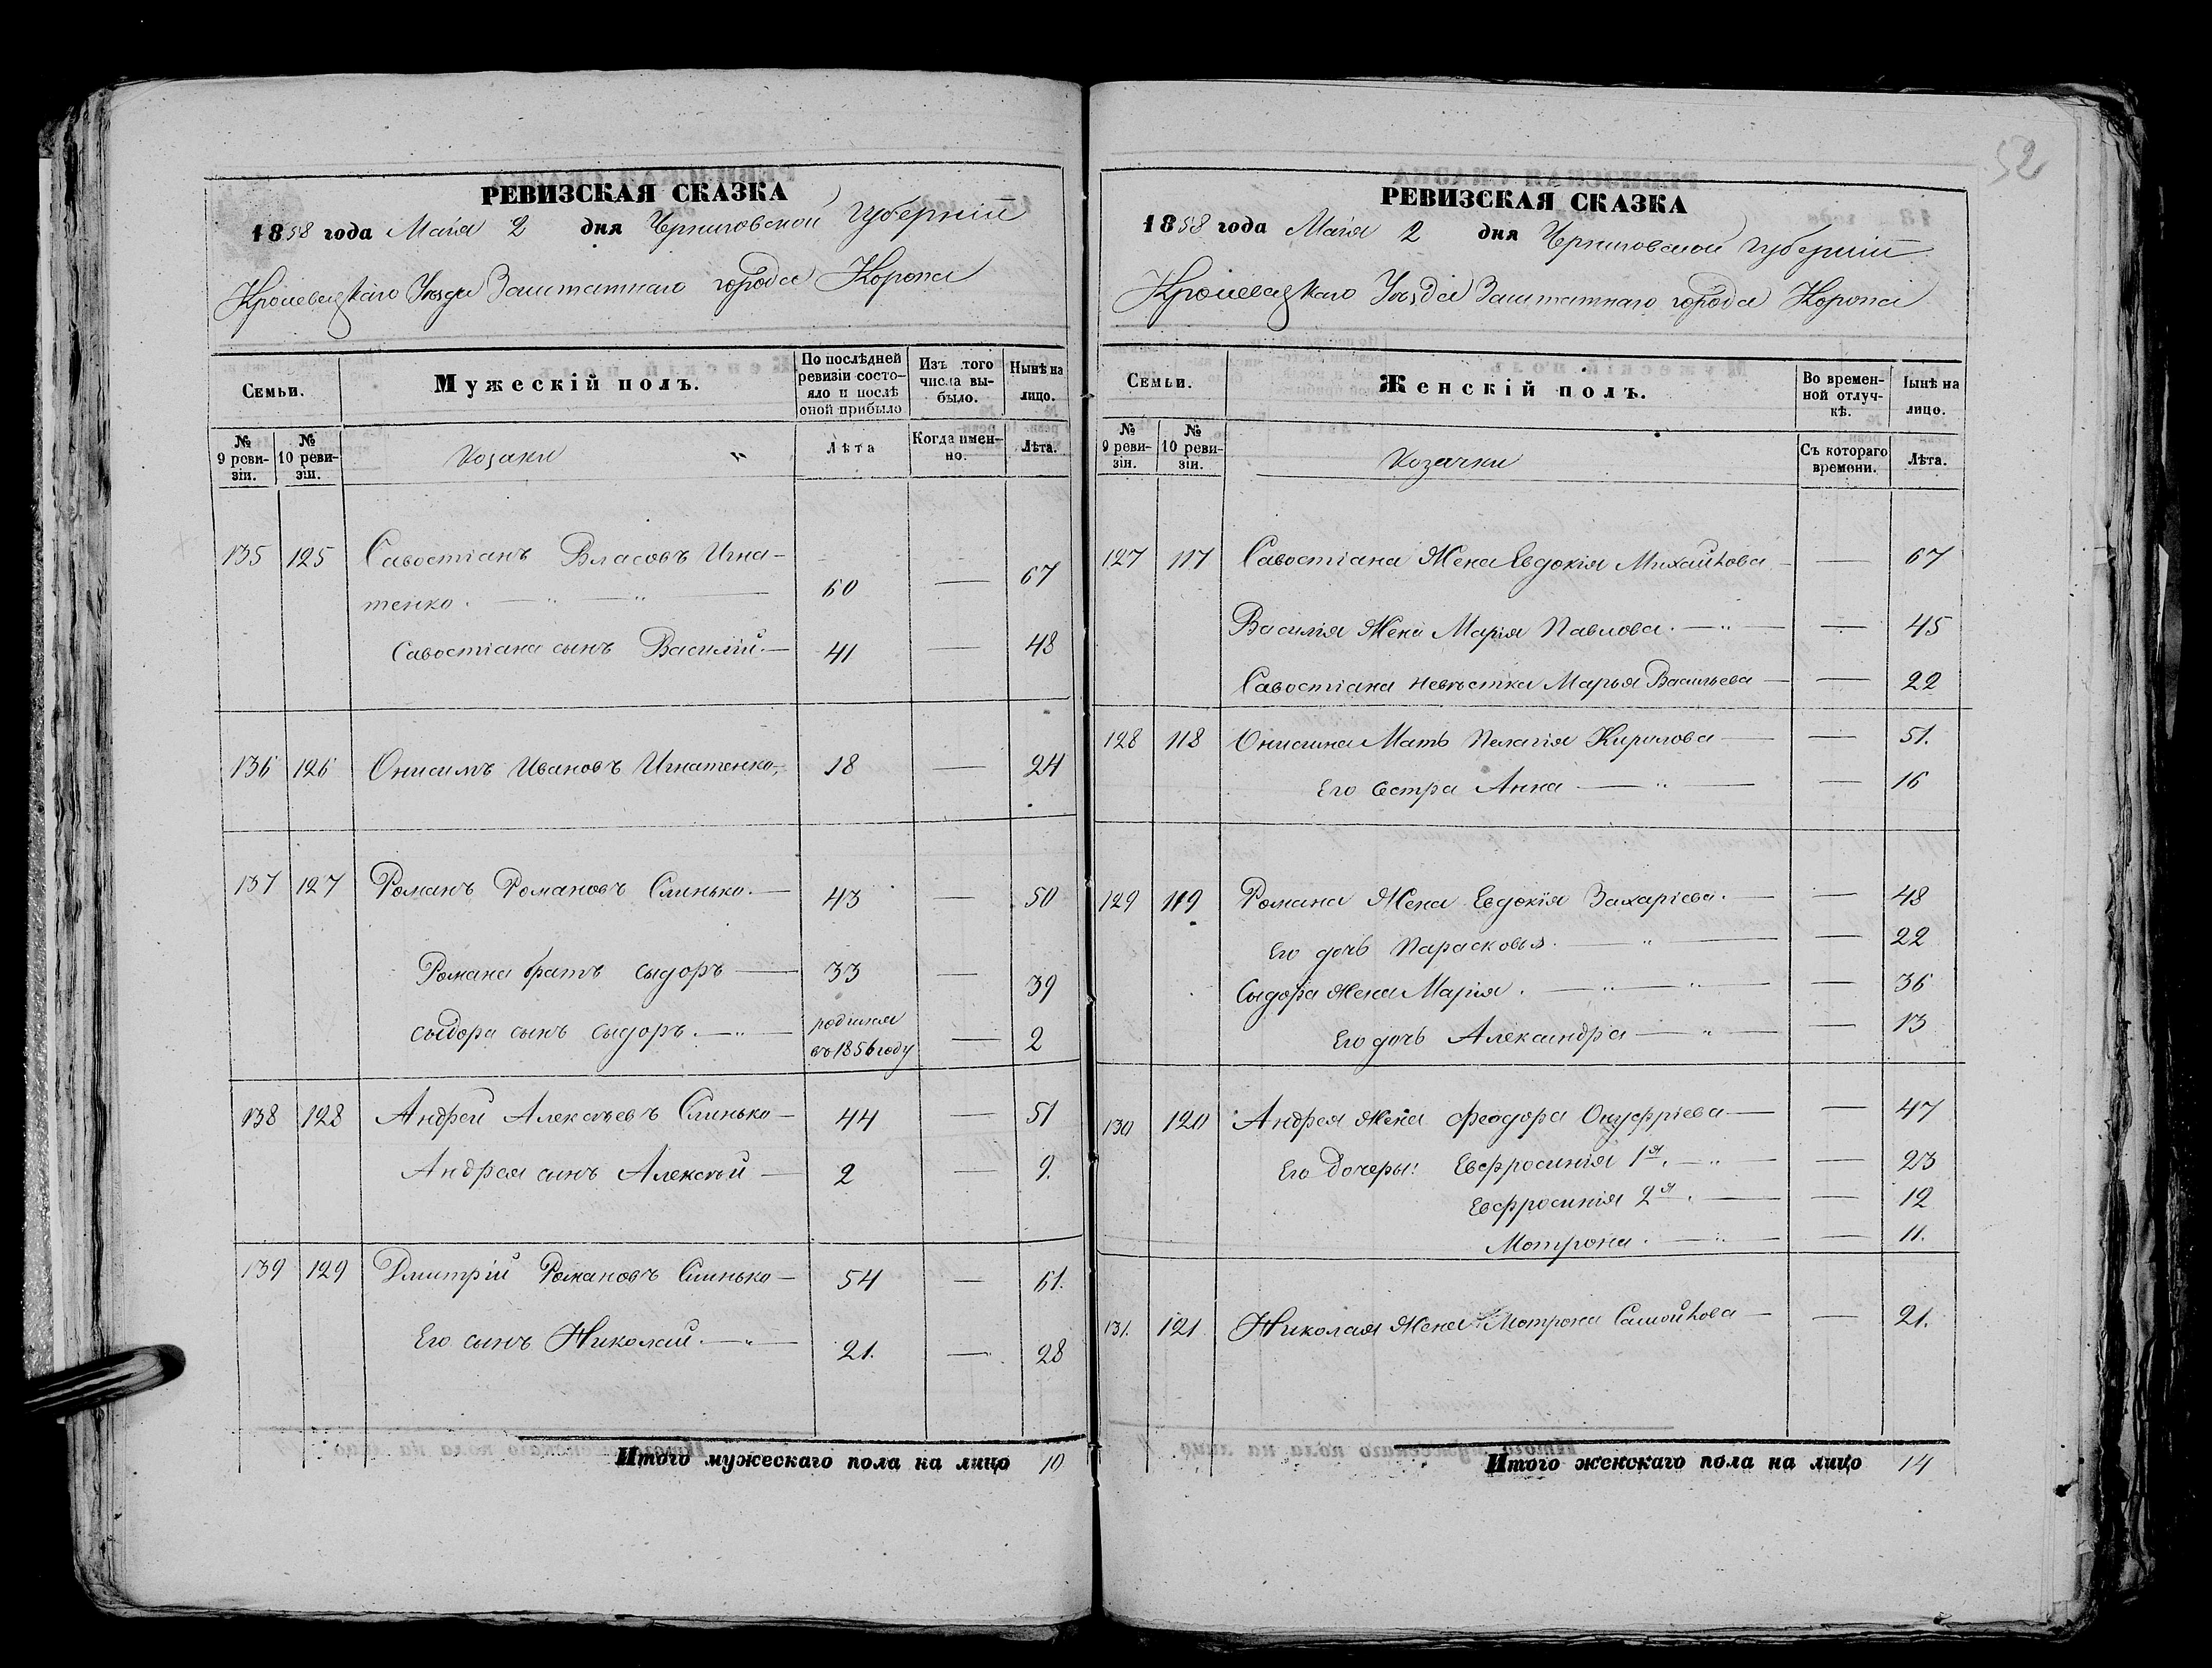 52
РЕВИЗСКАЯ СКАЗКА
1858 года Маія 2 дня Черниговской Губерніи
Кролевецкаго Уѣзда Заштатнаго города Коропа
Семьи.
Мужескій полъ.
По послѣдней ревизіи состояло и послѣ оной прибыло
Изъ того числа выбыло.
Нынѣ на лицо.
№ 9 ревизіи.
№ 10 ревизіи.
Козаки "
Лѣта
Когда именно.
Лѣта.
135 125 Савостіанъ Власовъ Игна-
тенко. — " — " — 60 — 67
Савостіана сынъ Василій. — 41 — 48
136 126 Онисимъ Ивановъ Игнатенко, 18 — 24
137 127 Романъ Романовъ Слинько. — 43 — 50
Романа братъ Сыдоръ — 33 — 39
Сыдора сынъ Сыдоръ. — " — родился въ 1856 году — 2
138 128 Андрей Алексѣевъ Слинько — 44 — 51
Андрея сынъ Алексѣй — 2 — 9.
139 129 Дмитрій Романовъ Слинько — 54 — 61.
Его сынъ Николай. — " — 21. — 28
Итого мужескаго пола на лицо 10
РЕВИЗСКАЯ СКАЗКА
1858 года Маія 2 дня Черниговской Губерніи
Кролевецкаго Уѣзда Заштатнаго города Коропа
Семьи.
Женскій полъ.
Во временной отлучкѣ.
Нынѣ на лицо.
№ 9 ревизіи.
№ 10 ревизіи.
Козачки
Съ котораго времени.
Лѣта.
127 117 Савостіана Жена Евдокія Михайлова — — 67
Василія Жена Марія Павлова. — " — — 45
Савостіана невѣстка Марья Васильева — — 22
128 118 Онисима Мать Пелагія Кирилова — — 51.
Его Сестра Анна — " — — 16
129 119 Романа Жена Евдокія Захаріева. — — 48
Его дочь Парасковья. — " — — 22
Сыдора Жена Марія. — " — " — — 36
Его дочь Александра — " — — 13
130 120 Андрея Жена Феодора Онуфріева — — 47
Его Дочеры: Евфросинія 1я. — " — — 23
Евфросинія 2я. — — 12
Мотрона. — " — — 11.
131. 121 Николая Жена Мотрона Самойлова — — 21.
Итого женскаго пола на лицо 14